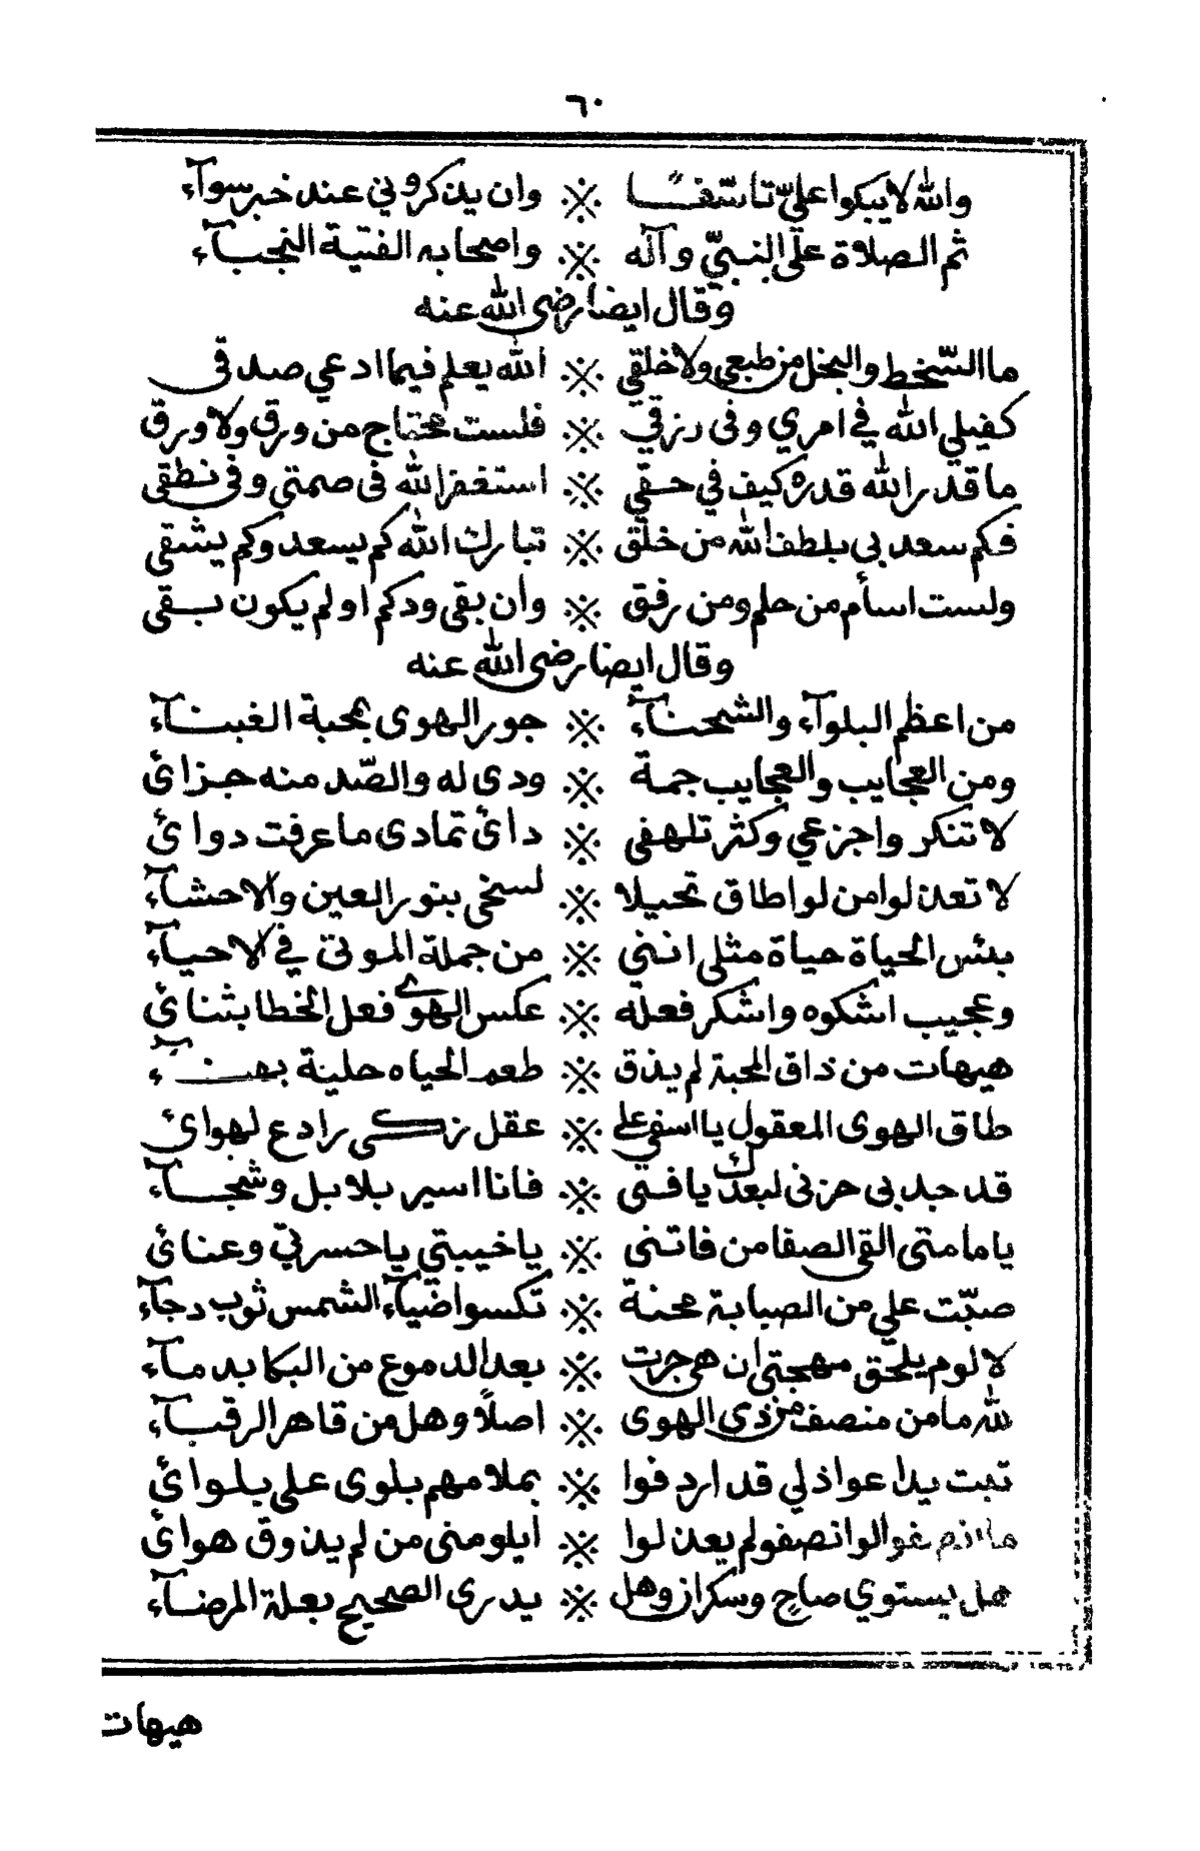 ٦٠
والله لا يبكوا عليّ تاسّفًا ※ وان يذكروني عند خبر سوآء
ثم الصلاة على النبيّ وآله ※ واصحابه الفتية النجبآء
وقال ايضا رضى الله عنه
ما السّخط والبخل من طبعي ولا خلقي ※ الله يعلم فيما ادعي صدقى
كفيلي الله في امري وفى رزقي ※ فلست محتاج من ورق ولا ورق
ما قدر الله قدره كيف في حقي ※ استغفر الله فى صمتي وفى نطقى
فكم سعد بي بلطف الله من خلق ※ تبارك الله كم يسعد وكم يشقى
ولست اسأم من حلم ومن رفق ※ وان بقى ودكم او لم يكون بقى
وقال ايضا رضى الله عنه
من اعظم البلوآء والشحنآء ※ جور الهوى بمحبة الغبنآء
ومن العجايب والعجايب جمة ※ ودى له والصّد منه جزائ
لا تنكر واجزعي وكثر تلهفى ※ دائ تمادى ما عرفت دوائ
لا تعذلوا من لو اطاق تحيلا ※ لسخى بنور العين والاحشآء
بئس الحياة حياة مثلى انني ※ من جملة الموتى في الاحيآء
وعجيب اشكوه واشكر فعله ※ عكس الهوے فعل الخطا بثنائ
هيهات من ذاق المحبة لم يذق ※ طعم الحياه حلية بهنآء
طاق الهوى المعقول يا اسفى على ※ عقل زكى رادع لهوائ
قد جد بى حزنى لبعدك يا فتى ※ فانا اسير بلابل وشجآء
ياما متى القى الصفا من فاتنى ※ يا خيبتي يا حسرتي وعنائ
صبّت علي من الصبابة محنة ※ تكسوا ضيآء الشمس ثوب دجآء
لا لوم يلحق مهجتى ان هى جرت ※ بعد الدموع من البكا بدمآء
لله ما من منصف من ذى الهوى ※ اصلًا وهل من قاهر الرقبآء
تبت يدا عواذلي قد اردفوا ※ بملامهم بلوى على بلوائ
ما انصفوا لو انصفو لم يعذلوا ※ ايلومنى من لم يذوق هوائ
هل يستوي صاحٍ وسكران وهل ※ يدرى الصحيح بعلة المرضآء
هيهات